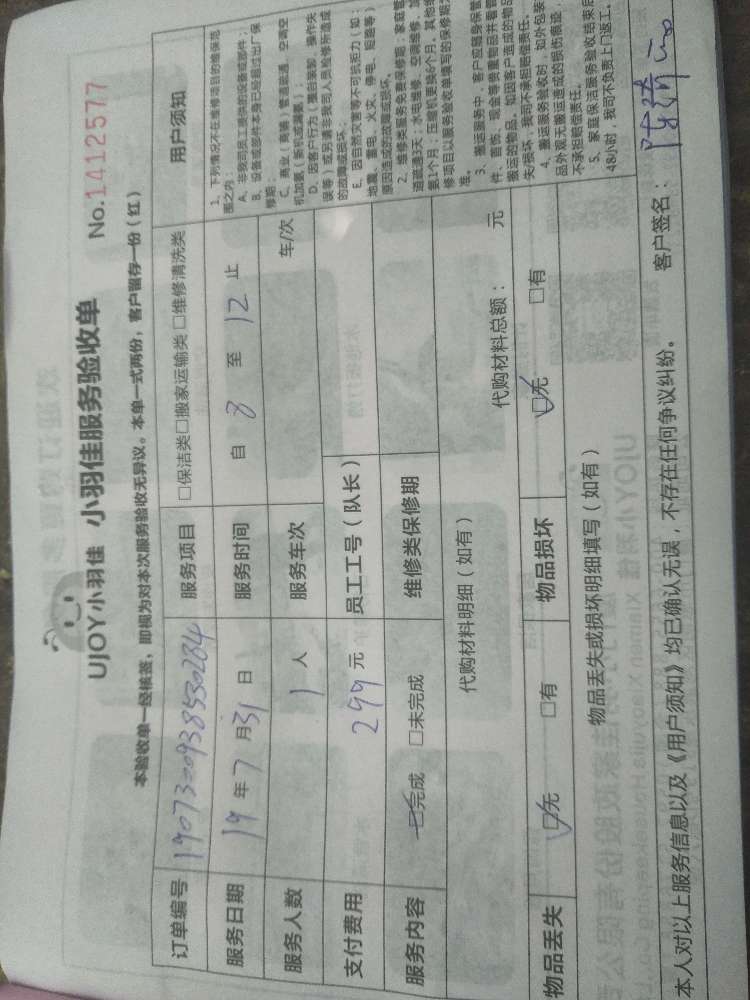 UJOY小羽佳 小羽佳服务验收单 No.1412577
本验收单一经核签，即视为对本次服务验收无异议。本单一式两份，客户留存一份（红）
订单编号 1907300938530284 服务项目 □保洁类□搬家运输类□维修清洗类
服务日期 19年7月31日 服务时间 自8至12止
服务人数 1人 服务车次 车/次
支付费用 299元 员工工号（队长）
服务内容 ☑完成 □未完成 维修类保修期
代购材料明细（如有） 代购材料总额： 元
物品丢失 ☑无 □有 物品损坏 ☑无 □有
物品丢失或损坏明细填写（如有）
用户须知
1、下列情况不在维修项目的维保范
围之内：
A、非我司员工提供的设备或部件；
B、设备或部件本身已经超过出厂保
修期；
C、商业（商铺）管道疏通、空调空
机加氨（新机或漏氨）；
D、因客户行为（擅自装卸、操作失
误等）或另请非我司人员检修所造成
的故障或损坏；
E、因自然灾害等不可抗拒力（如：
地震、雷电、火灾、停电、短路等）
原因造成的故障或损坏。
2、维修类服务免费保修期：家庭管
道疏通3天；水电维修、空调维修、加
氨1个月；压缩机更换6个月，其他维
修项目以服务验收单填写的保修期为
准。
3、搬运服务中，客户应随身保管
件、首饰、现金等贵重物品并看管
搬运的物品。如因客户造成的物品
失损坏，我司不承担赔偿责任。
4、搬运服务验收时，如外包装
品外观无搬运造成的损伤痕迹，
不承担赔偿责任。
5、家庭保洁服务验收结束后
48小时，我司不负责上门返工。
本人对以上服务信息以及《用户须知》均已确认无误，不存在任何争议纠纷。 客户签名：